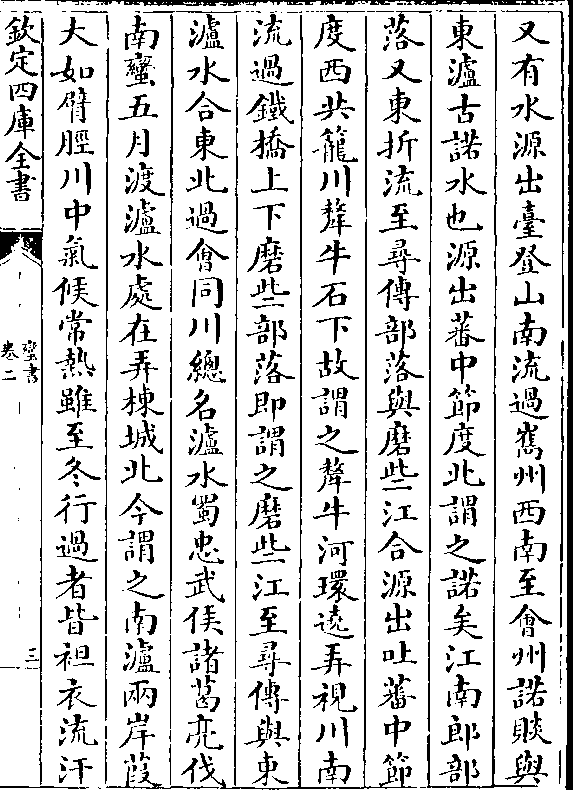 又有水源出臺登山南流過嶲州西南至會州諾賧與
東瀘古諾水也源出蕃中節度北謂之諾矣江南郎部
落又東折流至尋傳部落與磨些江合源出吐蕃中節
度西共籠川犛牛石下故謂之犛牛河環遶弄視川南
流過鐵橋上下磨些部落即謂之磨些江至尋傳與東
瀘水合東北過會同川總名瀘水蜀忠武侯諸葛亮伐
南蠻五月渡瀘水處在弄棟城北今謂之南瀘兩岸葭
大如臂脛川中氣候常熱雖至冬行過者皆袒衣流汗
欽定四庫全書
蠻書
卷二
三